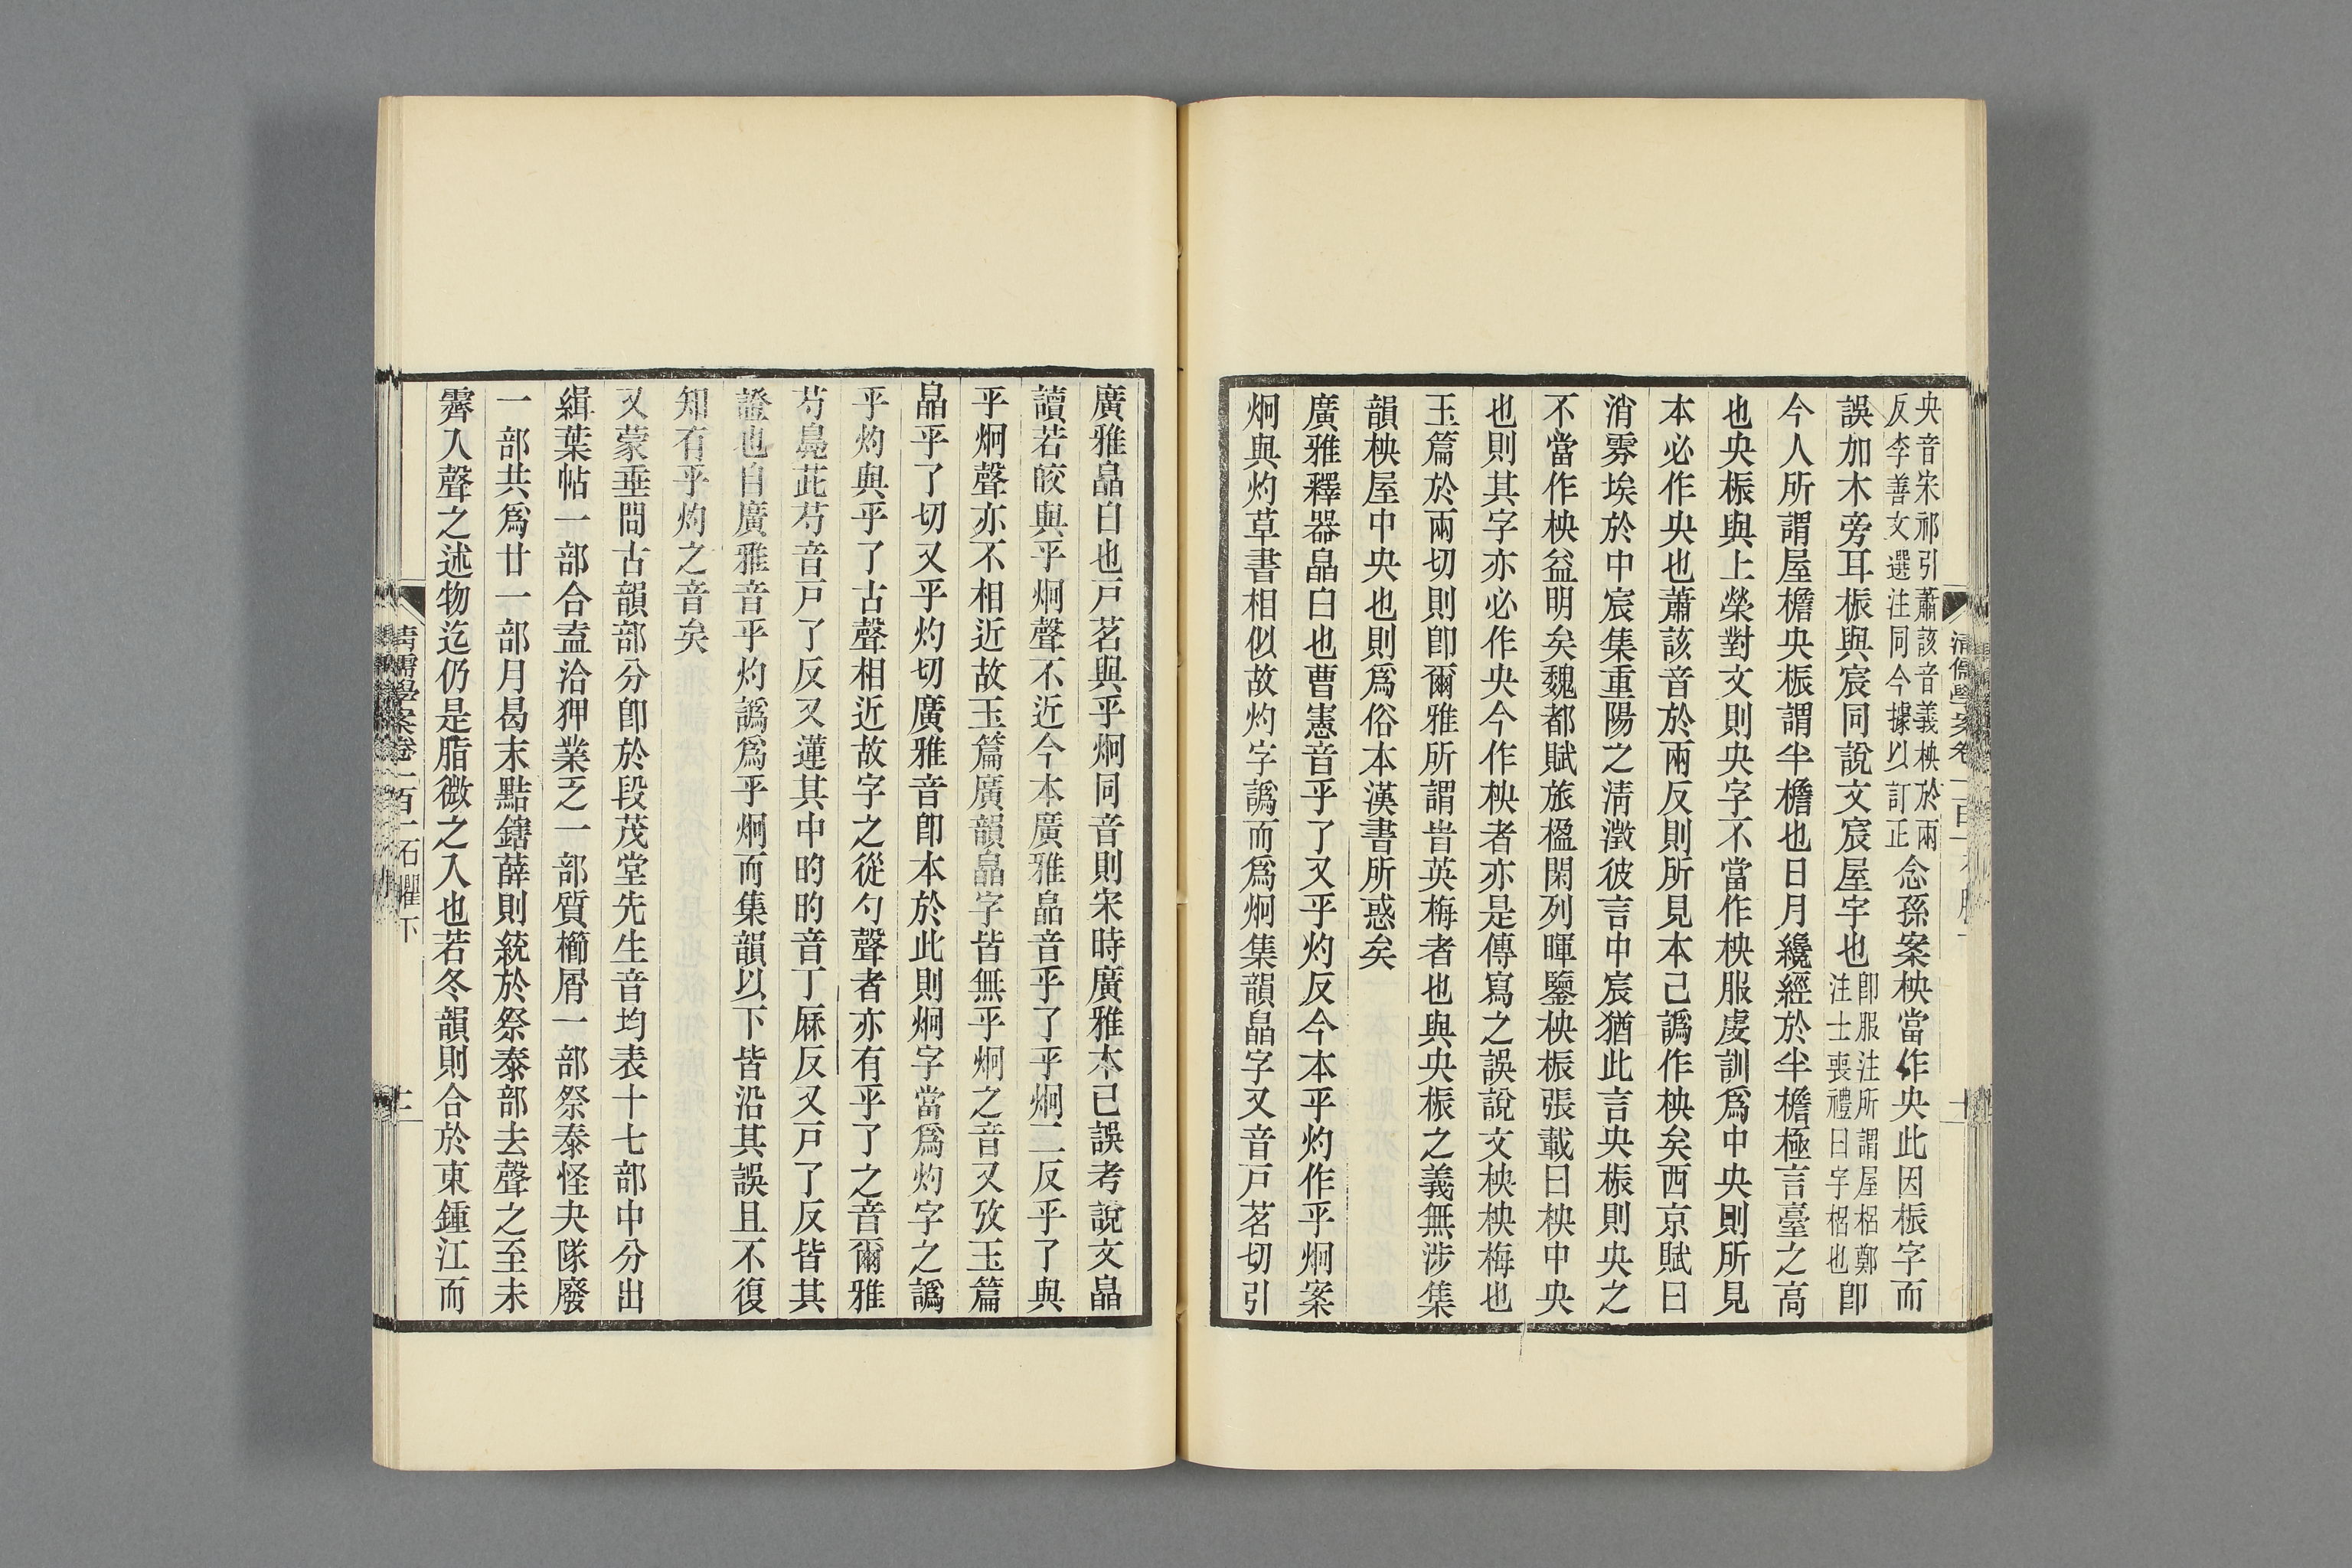 央音宋祁引蕭該音義柍於兩
反李善文選注同今據以訂正
念孫案柍當作央此因桭字而
誤加木旁耳桭與宸同說文宸屋宇也
卽服注所謂屋梠鄭
注士喪禮曰宇梠也
卽
今人所謂屋檐央桭謂半檐也日月纔經於半檐極言臺之高
也央桭與上榮對文則央字不當作柍服虔訓爲中央則所見
本必作央也蕭該音於兩反則所見本已譌作柍矣西京賦曰
消雰埃於中宸集重陽之淸澂彼言中宸猶此言央桭則央之
不當作柍益明矣魏都賦旅楹閑列暉鑒柍桭張載曰柍中央
也則其字亦必作央今作柍者亦是傳寫之誤說文柍柍梅也
玉篇於兩切則卽爾雅所謂旹英梅者也與央桭之義無涉集
韻柍屋中央也則爲俗本漢書所惑矣
廣雅釋器皛白也曹憲音乎了又乎灼反今本乎灼作乎炯案
炯與灼草書相似故灼字譌而爲炯集韻皛字又音戸茗切引
廣雅皛白也戸茗與乎炯同音則宋時廣雅本已誤考說文皛
讀若皎與乎炯聲不近今本廣雅皛音乎了乎炯二反乎了與
乎炯聲亦不相近故玉篇廣韻皛字皆無乎炯之音又攷玉篇
皛乎了切又乎灼切廣雅音卽本於此則炯字當爲灼字之譌
乎灼與乎了古聲相近故字之從勺聲者亦有乎了之音爾雅
芍鳧茈芍音戸了反又蓮其中的的音丁厤反又戸了反皆其
證也自廣雅音乎灼譌爲乎炯而集韻以下皆沿其誤且不復
知有乎灼之音矣
又蒙垂問古韻部分卽於段茂堂先生音均表十七部中分出
緝葉帖一部合盍洽狎業乏一部質櫛屑一部祭泰怪夬隊廢
一部共爲廿一部月曷末黠鎋薛則統於祭泰部去聲之至未
霽入聲之述物迄仍是脂微之入也若冬韻則合於東鍾江而
淸儒學案卷一百一石臞下